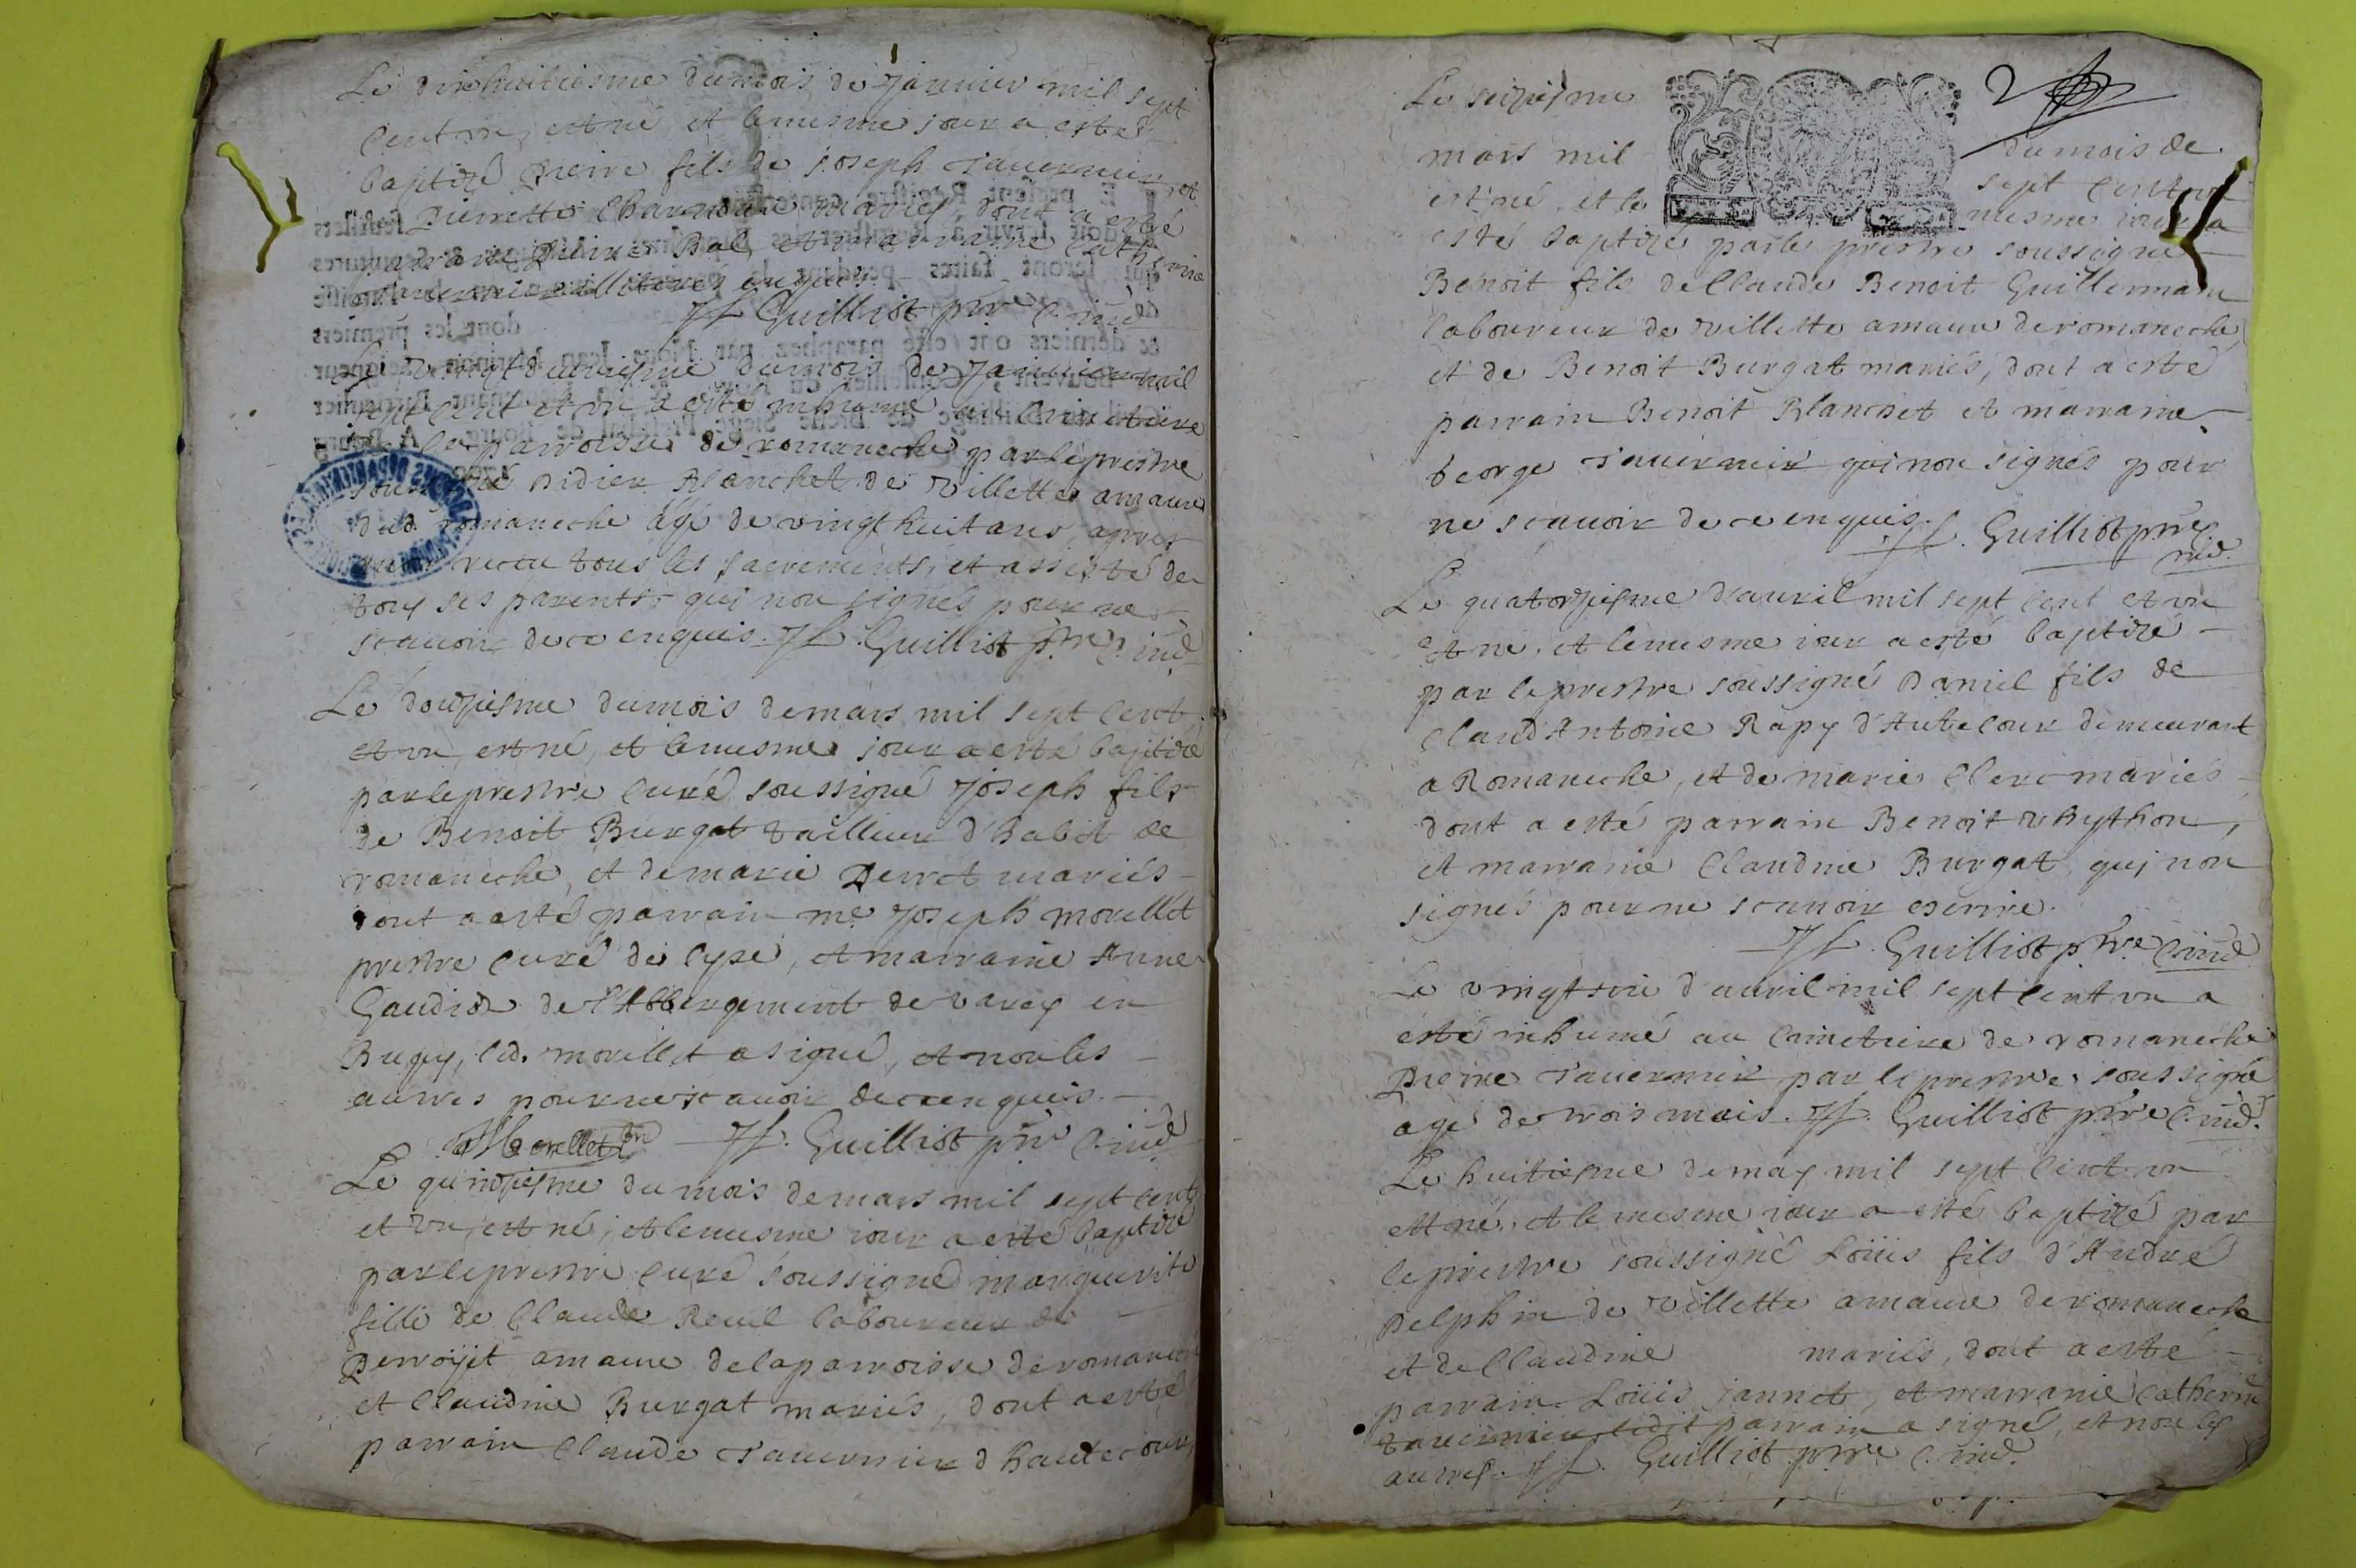 Le dixhuitiesme dumois de Janvier mil sept
cent un, est né et lemesme jour a esté
baptizé pierre fils de joseph Tavernier et
pierrette mariés, dont a esté
parrain pierre Bal, et marraine Catherine
illiterés enquis.
Guilliot pre C. ind
Le vingt deuxiesme dumois de Janvier mil
sept cent et un a esté inhumé au cimetiere
de la parroisse de romaneche par leprestre
soussigné Didier Blanchet de Villette amaure
dud. romaneche âgé de vingt huit ans, apres
avoir receu tous les sacrements, et assisté de
tous ses parents qui non signés pour ne
scavoir de ce enquis. JF. Guilliot pre C. ind
Le douziesme dumois demars mil sept cent
et un, est né, et lemesme jour a esté baptizé
par leprestre curé soussigné Joseph fils
de Benoit Burgat tailleur d'habit de
romaneche, et de marie Perret mariés
dont a esté parrain me Joseph morellet
prestre curé de cyze, et marraine Anne
Gaudion de l'Abbergement de varey en
Bugey, led. morellet a signé, et non les
autres pour ne scavoir de ce enquis.
Morellet JF. Guilliot pre C. ind
Le quinziesme du mois demars mil sept cent
et un, est né, et lemesme iour a esté baptizé
par leprestre curé soussigné marguerite
fille de Claude Reuil laboureur de
perroyet amaure delaparroisse de romaneche
et Claudine Burgat mariés, dont a esté
parrain Claude Tavernier d'hautecour,
2
Le seiziesme dumois de
mars mil sept cent un
est né, et le mesme iour a
esté baptizé par le prestre soussigné
Benoit fils de Claude Benoit Guillermain
laboureur de villette amaure de romaneche,
et de Benoit Burgat mariés, dont a esté
parrain Benoit Blanchet et marraine
George Tavernier qui non signés pour
ne scavoir de ce enquis. JF. Guilliot pre
ind.
Le quatorziesme d'avril mil sept cent et un
est né, et lemesme iour a esté baptizé
par leprestre soussigné Daniel fils de
Claud'Antoine Rapy d'Autecour demeurant
a Romaneche, et de marie Clerc mariés
dont a esté parrain Benoit Python,
et marraine Claudine Burgat, qui non
signés pour ne scavoir escrire.
JF. Guilliot pre C. ind
Le vingt sixie d'avril mil sept cent un a
esté inhumé au cimetiere de romaneche
pierre Tavernier par leprestre soussigné
agé de trois mois. JF. Guilliot pre C. ind.
Le huitiesme de may mil sept cent un
est né, et le mesme iour a esté baptizé par
leprestre soussigné Loüis fils d'André
Delphin de villette amaure de romaneche
et de Claudine mariés, dont a esté
parrain Loüis jannet, et marraine Catherine
tavernier ledit parrain a signé, et non les
autres. JF. Guilliot pre C. ind.